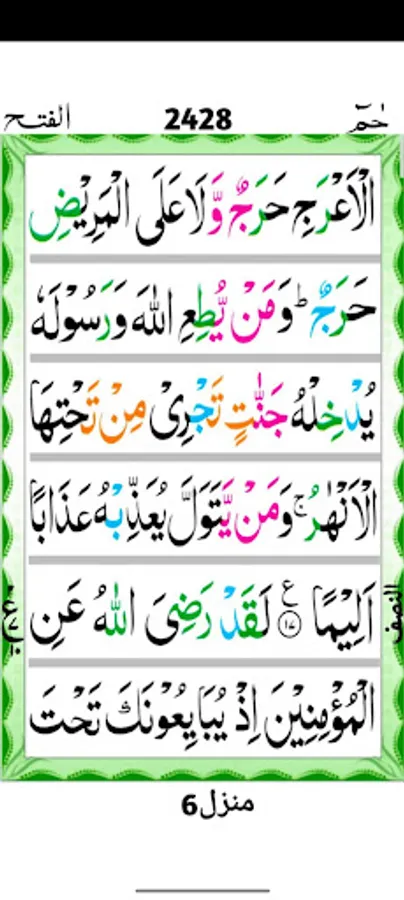 حٰمٓ 2428 الفتح
الْاَعْرَجِ حَرَجٌ وَّلَا عَلَى الْمَرِيْضِ
حَرَجٌ ؕ وَمَنْ يُّطِعِ اللّٰهَ وَرَسُوْلَهٗ
يُدْخِلْهُ جَنّٰتٍ تَجْرِىْ مِنْ تَحْتِهَا
الْاَنْهٰرُ ۚ وَمَنْ يَّتَوَلَّ يُعَذِّبْهُ عَذَابًا
اَلِيْمًا ﴿۱۷﴾ ع لَقَدْ رَضِىَ اللّٰهُ عَنِ
النصف
الْمُؤْمِنِيْنَ اِذْ يُبَايِعُوْنَكَ تَحْتَ
منزل6